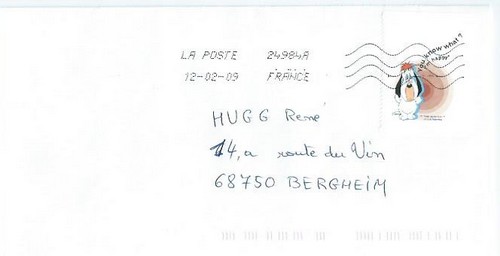 LA POSTE 24984A
12-02-09 FRANCE
You know what?
I'm happy.
HUGG René
14, a route du Vin
68750 BERGHEIM